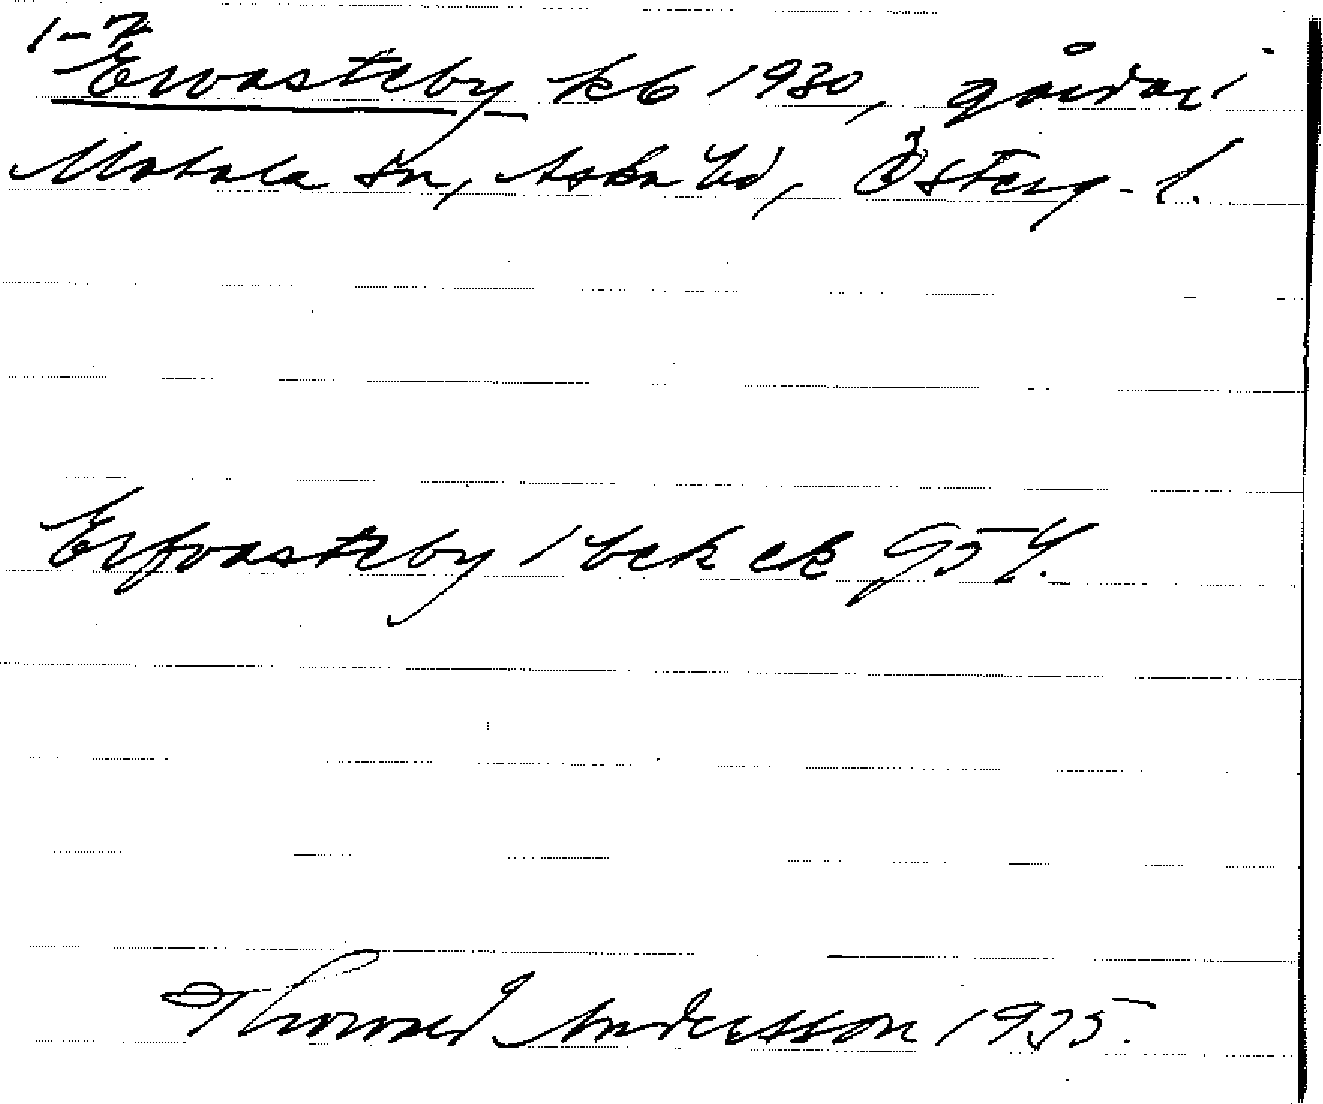 1-2
Ervasteby kb 1930, gårdar i
Motala sn, Aska hd, Österg. l.
Erfvasteby 1 bek ek 954.
Thorvald Andersson 1935.